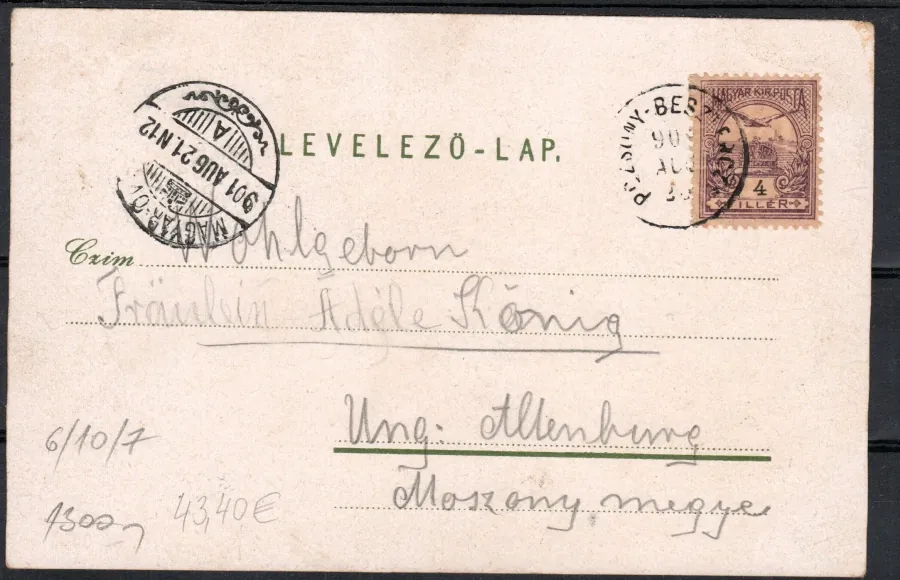 LEVELEZŐ-LAP.
MAGYAR KIR. POSTA
4
FILLÉR
POZSONY-BES
901 AUG 21 N12
MAGYAR-Ó
Czim Wohlgeborn
Fräulein Adéle König
Ung: Altenburg
Moszony megye
6/10/7
1300
43,40€